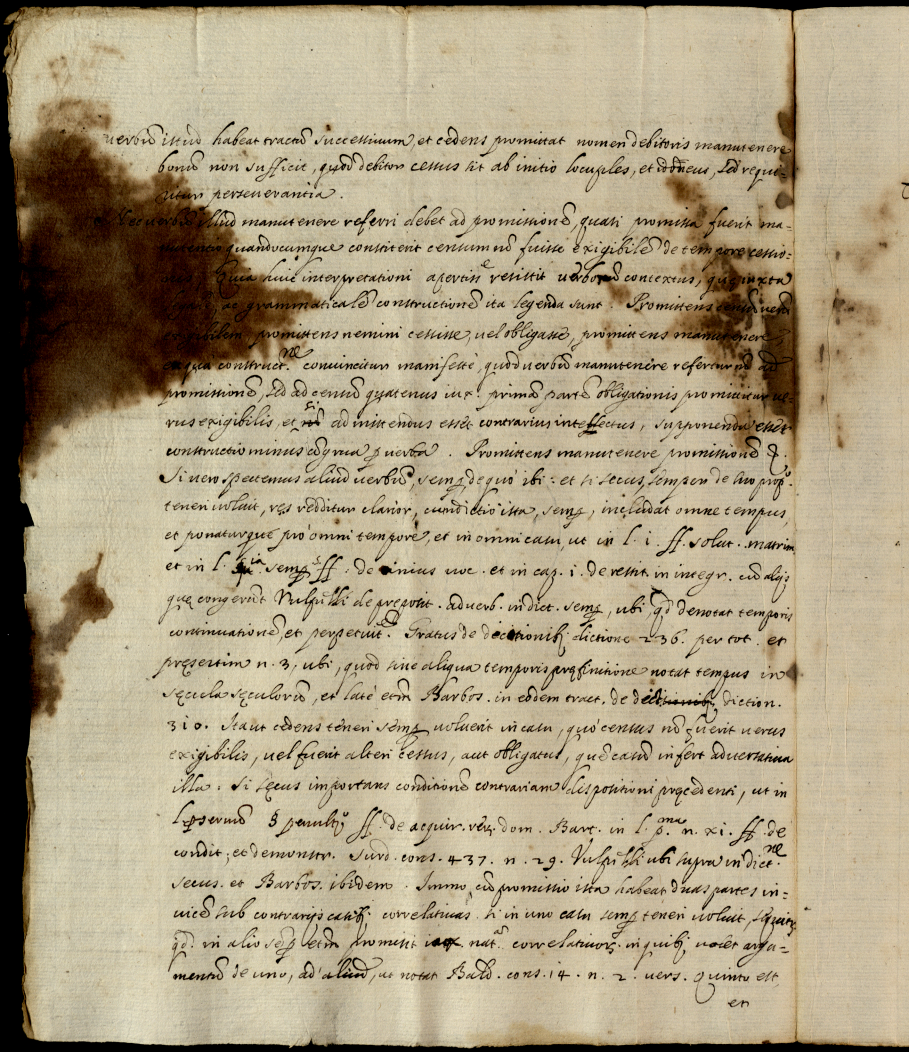 verbũ istud habeat tractũ successiuum, et cedens promittat nomen debitoris manutenere
bonũ non sufficit, quod debitor cessus sit ab initio locuples, et idoneus, sed requi-
ritur perseuerantia.
Nec verbũ illud manutenere referri debet ad promissionẽ, quasi promissa fuerit ma-
nutentio quandocumque constiterit censum nõ fuisse exigibilẽ de tempore cessio-
Quia huic interpretationi apertissᵉ resistit verborũ contextus, que iuxta
ac grammaticalẽ constructionẽ ita legenda sunt. Promittens censũ verũ
exigibilem, promittens nemini cessisse, vel obligasse, promittens manutenere,
ex qua construct.ⁿᵉ conuincitur manifestè, quod verbũ manutenere refertur nõ ad
promissionẽ, sed ad censũ quatenus iux.ᵃ primã partẽ obligationis promittitur ve-
rus exigibilis, et si admittendus esset contrarius intellectus, supponenda esset
constructio minus cõgrua ꝑ verba. Promittens manutenere promissionẽ &.
Si vero spectemus aliud verbũ, semꝑ de quo ibi: et si secus semper de suo prop.º
teneri voluit, res redditur clarior, cum dictio ista, semꝑ, includat omne tempus,
et ponatur que pro omni tempore, et in omni casu, ut in l. i. ff. solut. matrim
et in l. semꝑ ff. de iur. imm. et in cap. i. de restit. in integr. cũ alijs
que congerunt Vulpill. de preposit. aduerb. in dict. semꝑ, ubi, qd denotat temporis
continuationẽ, et perpetuit.ẽ Gratus de dictionibꝫ dictione 236. per tot. et
presertim n. 3. ubi, quod sine aliqua temporis prefinitione notat tempus in
secula seculorũ, et latè etiã Barbos. in eodem tract. de dictionibꝫ diction.
310. Ita ut cedens teneri semꝑ voluerit in casu, quo census nõ fuerit verus
exigibilis, vel fuerit alteri cessus, aut obligatus, quẽ casũ infert aduersatiua
illa. Si secus importans conditionẽ contrariam dispositioni precedenti, ut in
l. ꝑ seruũ § penult.º ff. de acquir. rer. dom. Bart. in l. p.ᵐᵃ n. xi. ff. de
condit. et demonstr. Surd. cons. 437. n. 29. Vulpill. ubi supra in dict.ⁿᵉ
secus. et Barbos. ibidem. Immo cũ promissio ista habeat duas partes in-
uicẽ sub contrarijs casibꝫ correlatiuas. si in uno casu semꝑ teneri voluit, sequitꝫ
qd. in alio semꝑ etiã promisit nat.ᵃ correlatiuorũ. in quibꝫ valet argu-
mentũ de uno, ad aliud, ut notat Bald. cons. 14. n. 2. vers. Quinto est,
et